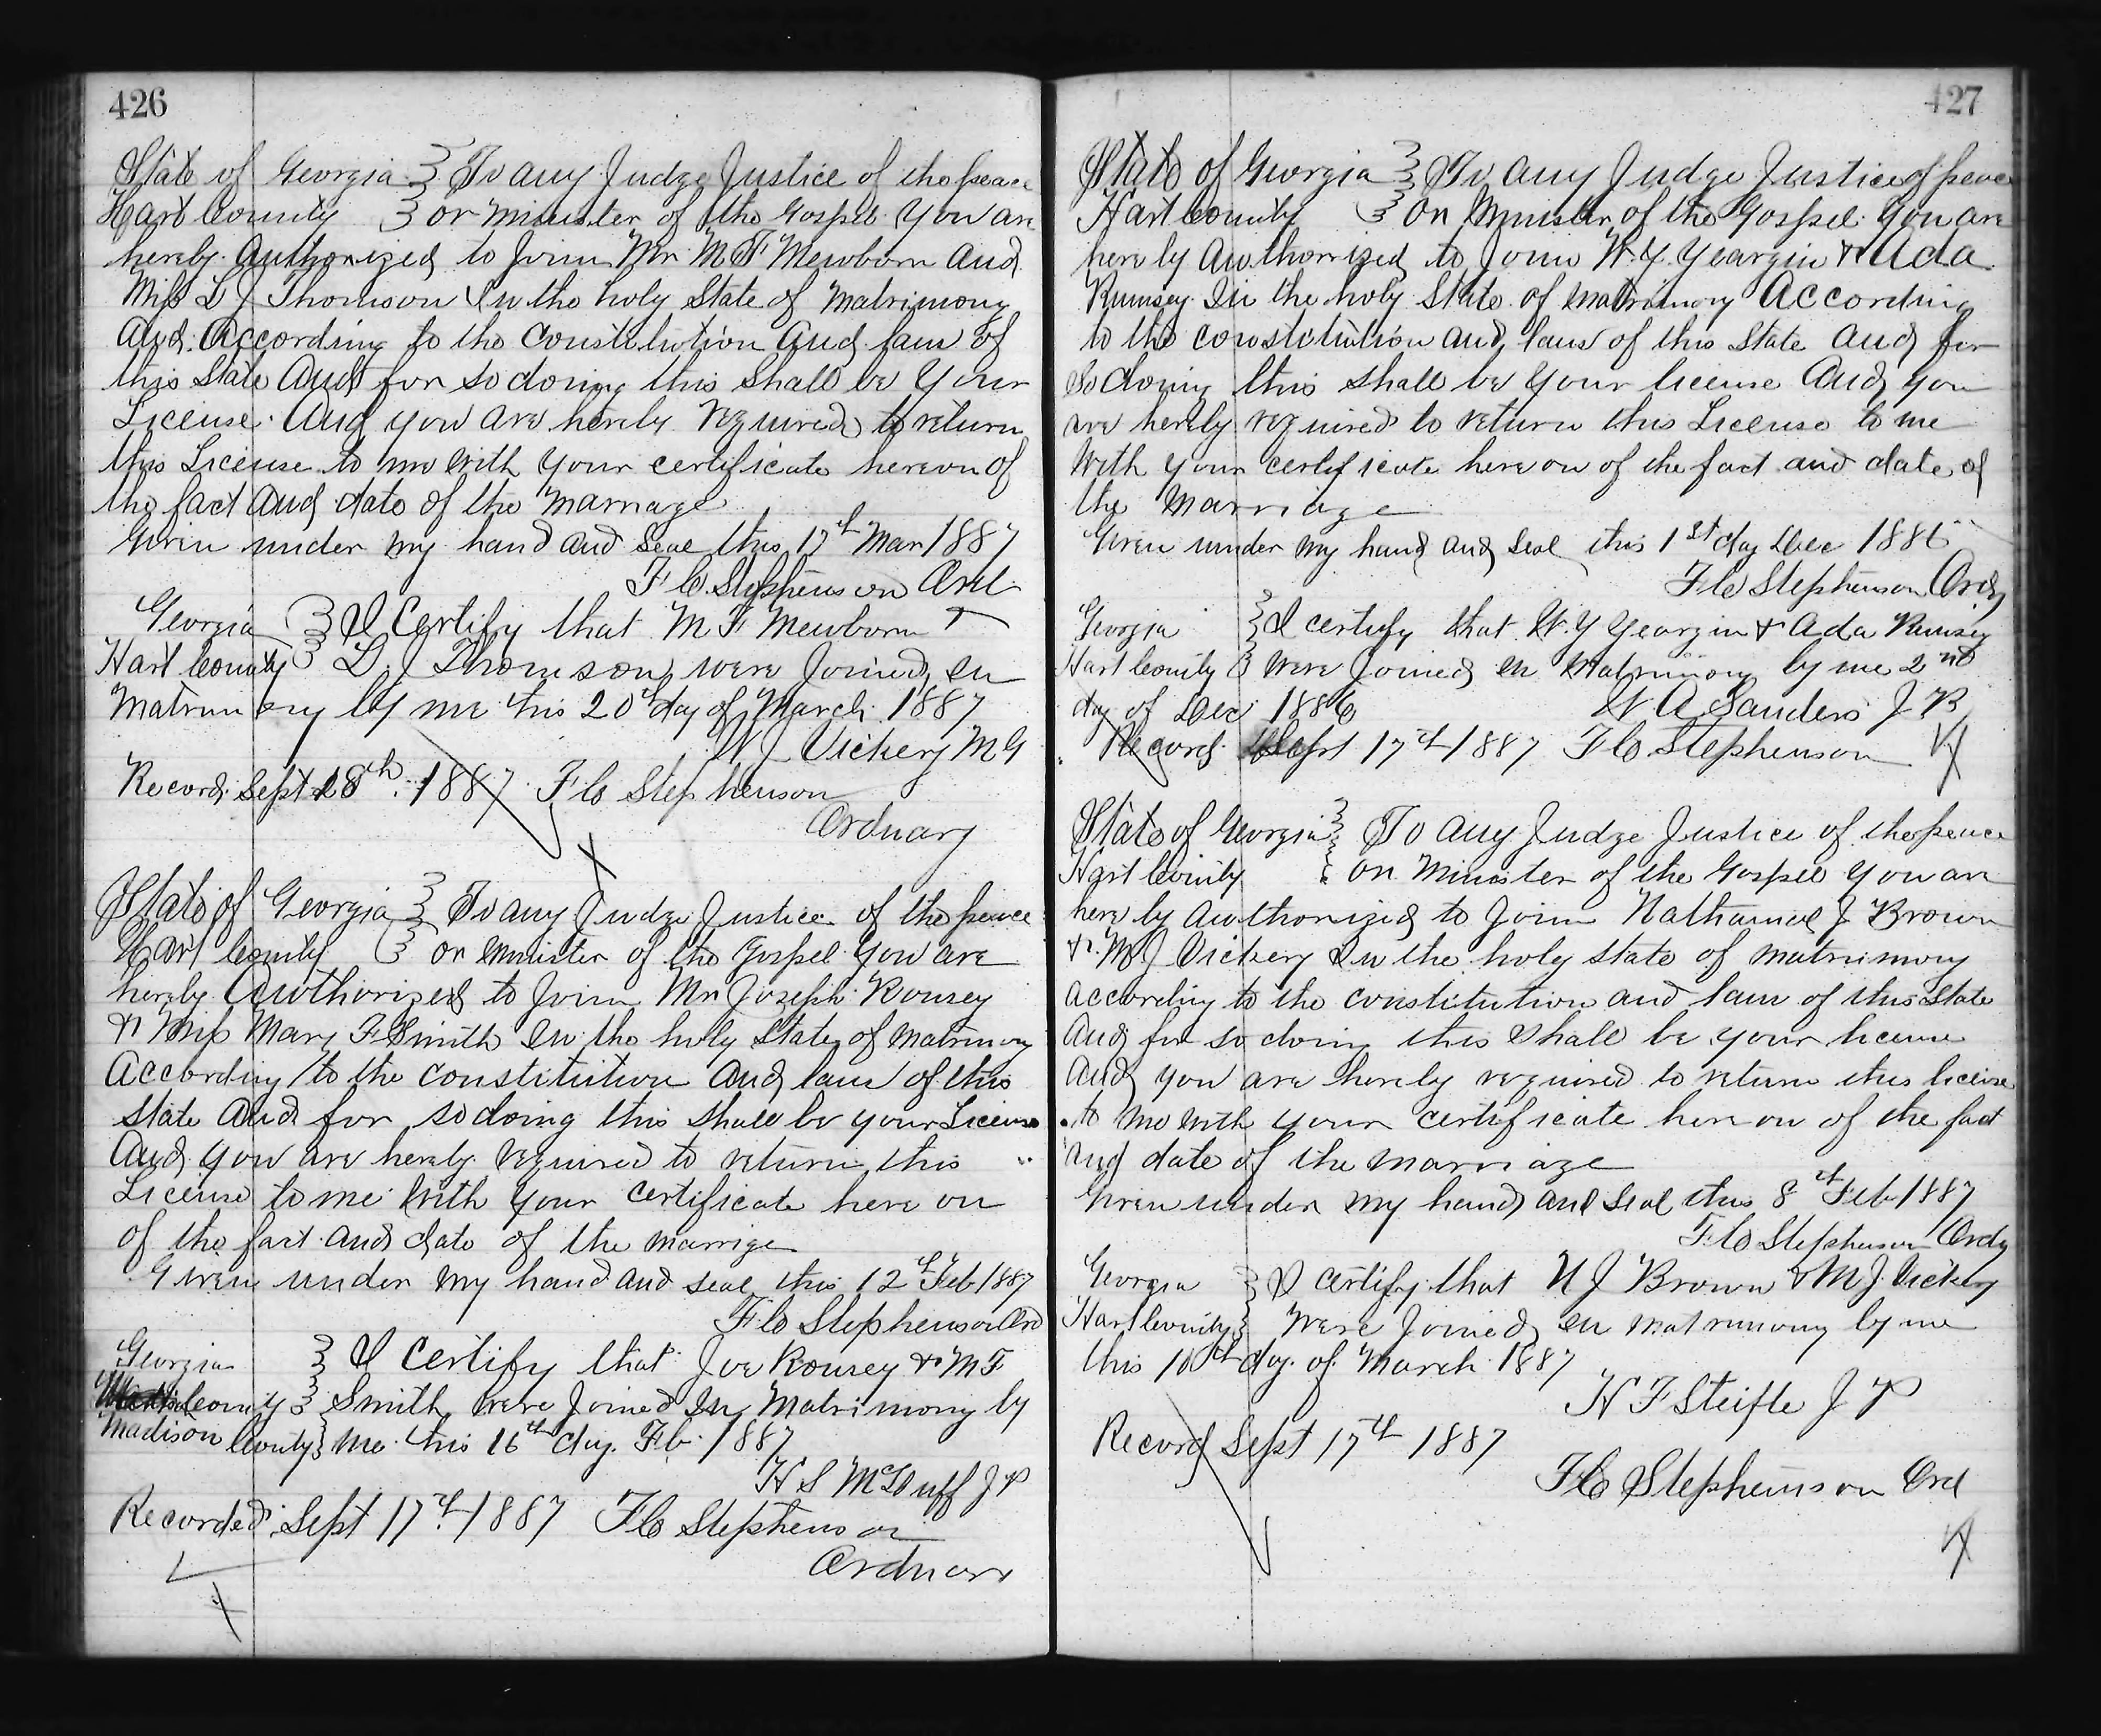 426
State of Georgia } To any Judge Justice of the peace
Hart County } or minister of the Gospel You are
hereby Authorized to Join Mr M F Mewborn and
Miss L J Thomson In the holy State of Matrimony
And According to the Constitution and laws of
this State And for so doing this Shall be Your
License And you are hereby required to return
this License to me with your certificate hereon of
the fact and date of the marriage
Given under my hand and Seal this 17th Mar 1887
F C Stephenson Ord
Georgia } I Certify that M F Mewborn +
Hart County } L J Thomson were Joined in
Matrimony by me this 20th day of March 1887
W J Vickery M G
Record Sept 18th 1887 F C Stephenson
Orduary
State of Georgia } To any Judge Justice of the peace
Hart County } or minister of the Gospel You are
hereby Authorized to Join Mr Joseph Rousey
& Miss Mary F Smith In the holy State of Matrimony
According to the constitution and laws of this
State and for so doing this shall be your License
And you are hereby required to return this
License to me with your certificate here on
of the fact and date of the marrige
Given under my hand and seal this 12th Feb 1887
F C Stephenson Ord
Georgia } I Certify that Joe Rousey & M F
County } Smith were Joined In Matrimony by
Madison County } me this 16th day Feb 1887
H S McDuff J P
Recorded Sept 17th 1887 F C Stephenson
Orduary
427
State of Georgia } To any Judge Justice of peace
Hart County } or Minister of the Gospel You are
hereby Authorized to Join W. Y. Yeargin & Ada
Rumsey In the holy State of matrimony According
to the constitution and laws of this State and for
so doing this shall be your license And you
are hereby required to return this License to me
With your certificate here on of the fact and date of
the Marriage
Given under my hand and Seal this 1st day Dec 1886
F C Stephenson Ord
Georgia } I certify that W. Y Yeargin & Ada Rumsey
Hart County } were Joined in Matrimony by me 2nd
day of Dec 1886 W A Sanders J P
Record Sept 17th 1887 F C Stephenson
State of Georgia } To any Judge Justice of the peace
Hart County } or Minister of the Gospel You are
here by Authorized to Join Nathaniel J Brown
& M J Vickery In the holy state of matrimony
according to the constitution and laws of this State
And for so doing this Shall be your license
And you are hereby required to return this license
to me with your certificate here on of the fact
and date of the marriage
Given under my hand and Seal this 8th Feb 1887
F C Stephenson Ordy
Georgia } I certify that N J Brown & M J. Vickery
Hart County } were Joined in matrimony by me
this 10th day of March 1887
H F Steifle J P
Record Sept 17th 1887
F C Stephenson Ord